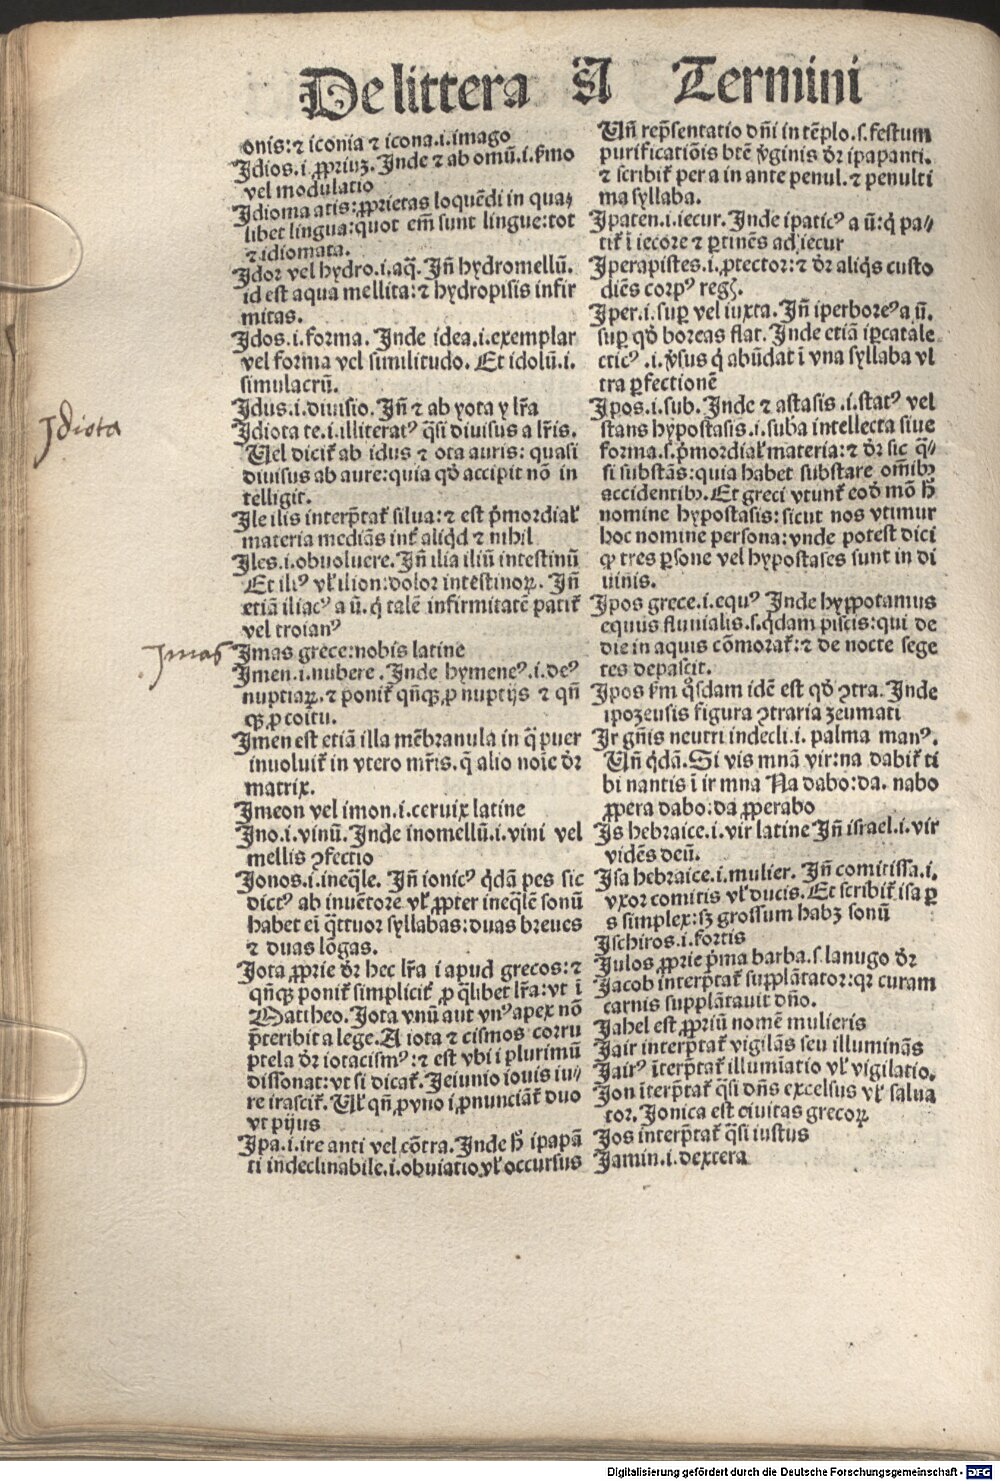 De littera A Termini
onis:⁊ iconia ⁊ icona.i.imago
Idios.i.ꝓpriuꝫ. Inde ⁊ ab omũ.i.ẜmo
vel modulatio
Idioma atis:ꝓprietas loquẽdi in qua⸗
libet lingua:quot em̃ sunt lingue:tot
⁊ idiomata.
Idor vel hydro.i.aq̃. Iñ hydromellũ.
id est aqua mellita:⁊ hydropisis infir
mitas.
Idos.i.forma. Inde idea.i.exemplar
vel forma vel similitudo. Et idolũ.i.
simulacrũ.
Idus.i.diuisio. Iñ ⁊ ab yota y lr̃a
Idiota te.i.illiteratꝰ q̃si diuisus a lr̃is.
Uel dicit᷑ ab idus ⁊ ota auris: quasi
diuisus ab aure:quia qđ accipit nõ in
telligit.
Ile ilis interp̃tat᷑ silua:⁊ est p̃mordial᷑
materia mediãs int᷑ aliqđ ⁊ nihil
Iles.i.obuoluere. Iñ ilia iliũ intestinũ
Et iliꝰ vl᷑ ilion:dolor intestinoꝝ. Iñ
etiã iliacꝰ a ũ. q̇ talẽ infirmitatẽ patit᷑
vel troianꝰ
Imas grece:nobis latine
Imen.i.nubere. Inde hymeneꝰ.i.deꝰ
nuptiaꝝ.⁊ ponit᷑ qñqꝫ ꝓ nuptijs ⁊ qñ
qꝫ ꝓ coitu.
Imen est etiã illa mẽbranula in q̃ puer
inuoluit᷑ in vtero mr̃is. q̃ alio noĩe dr̃
matrix.
Imeon vel imon.i.ceruix latine
Ino.i.vinũ. Inde inomellũ.i.vini vel
mellis ꝯfectio
Ionos.i.ineq̃le. Iñ ionicꝰ q̇dã pes sic
dictꝰ ab inuẽtore vl᷑ ꝓpter ineq̃lẽ sonũ
habet ei q̃ttuor syllabas:duas breues
⁊ duas lõgas.
Iota ꝓprie dr̃ hec lr̃a i apud grecos:⁊
qñqꝫ ponit᷑ simplicit᷑ ꝓ q̃libet lr̃a:vt ĩ
Mattheo. Iota vnũ aut vnꝰ apex nõ
p̃teribit a lege. A iota ⁊ cismos corru
ptela dr̃ iotacismꝰ:⁊ est vbi i plurimũ
dissonat:vt si dicat᷑. Ieiunio iouis iu⸗
re irascit᷑. Ul᷑ qñ ꝓ vno i ꝓnunciãt᷑ duo
vt pijus
Ipa.i.ire anti vel cõtra. Inde ħ ipapã
ti indeclinabile.i.obuiatio vl᷑ occursus
Uñ rep̃sentatio dñi in tẽplo.s.festum
purificatiõis btẽ v̾ginis dr̃ ipapanti.
⁊ scribit᷑ per a in ante penul.⁊ penulti
ma syllaba.
Ipaten.i.iecur. Inde ipaticꝰ a ũ:q̇ pa⸗
tit᷑ ĩ iecore ⁊ ꝑtinẽs ad iecur
Iperapistes.i.ꝓtector:⁊ dr̃ aliq̇s custo
diẽs corpꝰ regꝭ.
Iper.i.suꝑ vel iuxta. Iñ iperboreꝰ a ũ.
suꝑ qđ boreas flat. Inde etiã iꝑcatale
cticꝰ.i.v̾sus q̇ abũdat ĩ vna syllaba vl
tra ꝑfectionẽ
Ipos.i.sub. Inde ⁊ astasis.i.statꝰ vel
stans hypostasis.i.suba intellecta siue
forma.s.p̃mordial᷑ materia:⁊ dr̃ sic q̃⸗
si substãs:quia habet substare om̃ibꝫ
accidentibꝫ. Et greci vtunt᷑ eođ mõ ħ
nomine hypostasis:sicut nos vtimur
hoc nomine persona:vnde potest dici
ꝙ tres ꝑsone vel hypostases sunt in di
uinis.
Ipos grece.i.equꝰ Inde hyppotamus
equus fluuialis.s.q̇dam piscis:qui de
die in aquis cõmorat᷑:⁊ de nocte sege
tes depascit.
Ipos ẜm q̇sdam idẽ est qđ ꝯtra. Inde
ipozeusis figura ꝯtraria zeumati
Ir gñis neutri indecli.i. palma manꝰ.
Uñ q̇dã. Si vis mnã vir:na dabit᷑ ti
bi nantis ĩ ir mna Na dabo:da. nabo
ꝓpera dabo:da ꝓperabo
Is hebraice.i.vir latine Iñ israel.i.vir
vidẽs deũ.
Isa hebraice.i.mulier. Iñ comitissa.i.
vxor comitis vl᷑ ducis. Et scribit᷑ isa ꝑ
s simplex:sꝫ grossum habꝫ sonũ
Ischiros.i.fortis
Iulos ꝓprie p̃ma barba.s.lanugo dr̃
Iacob interp̃tat᷑ supplãtator:qꝛ curam
carnis supplãtauit dño.
Iahel est ꝓpriũ nomẽ mulieris
Iair interp̃tat᷑ vigilãs seu illuminãs
Iairꝰ ĩterp̃tat᷑ illumĩatio vl᷑ vigilatio.
Ion ĩterp̃tat᷑ q̃si dñs excelsus vl᷑ salua
tor. Ionica est ciuitas grecoꝝ
Ios interp̃tat᷑ q̃si iustus
Iamin.i.dextera
Idiota
Imas
Digitalisierung gefördert durch die Deutsche Forschungsgemeinschaft - DFG